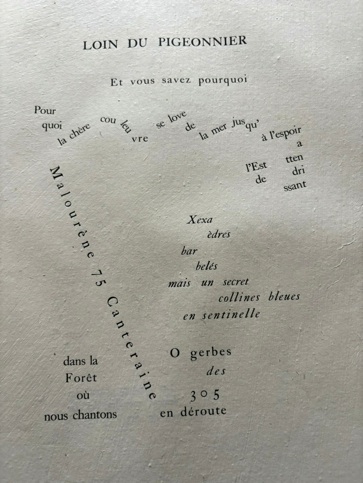 LOIN DU PIGEONNIER
Et vous savez pourquoi
Pour
quoi
la chère cou leu
vre
se love
de
la mer jus qu'
à l'espoir
a
tten
dri
ssant
l'Est
de
Malourène 75 Canteraine
Xexa
èdres
bar
belés
mais un secret
collines bleues
en sentinelle
dans la
Forêt
où
nous chantons
O gerbes
des
305
en déroute